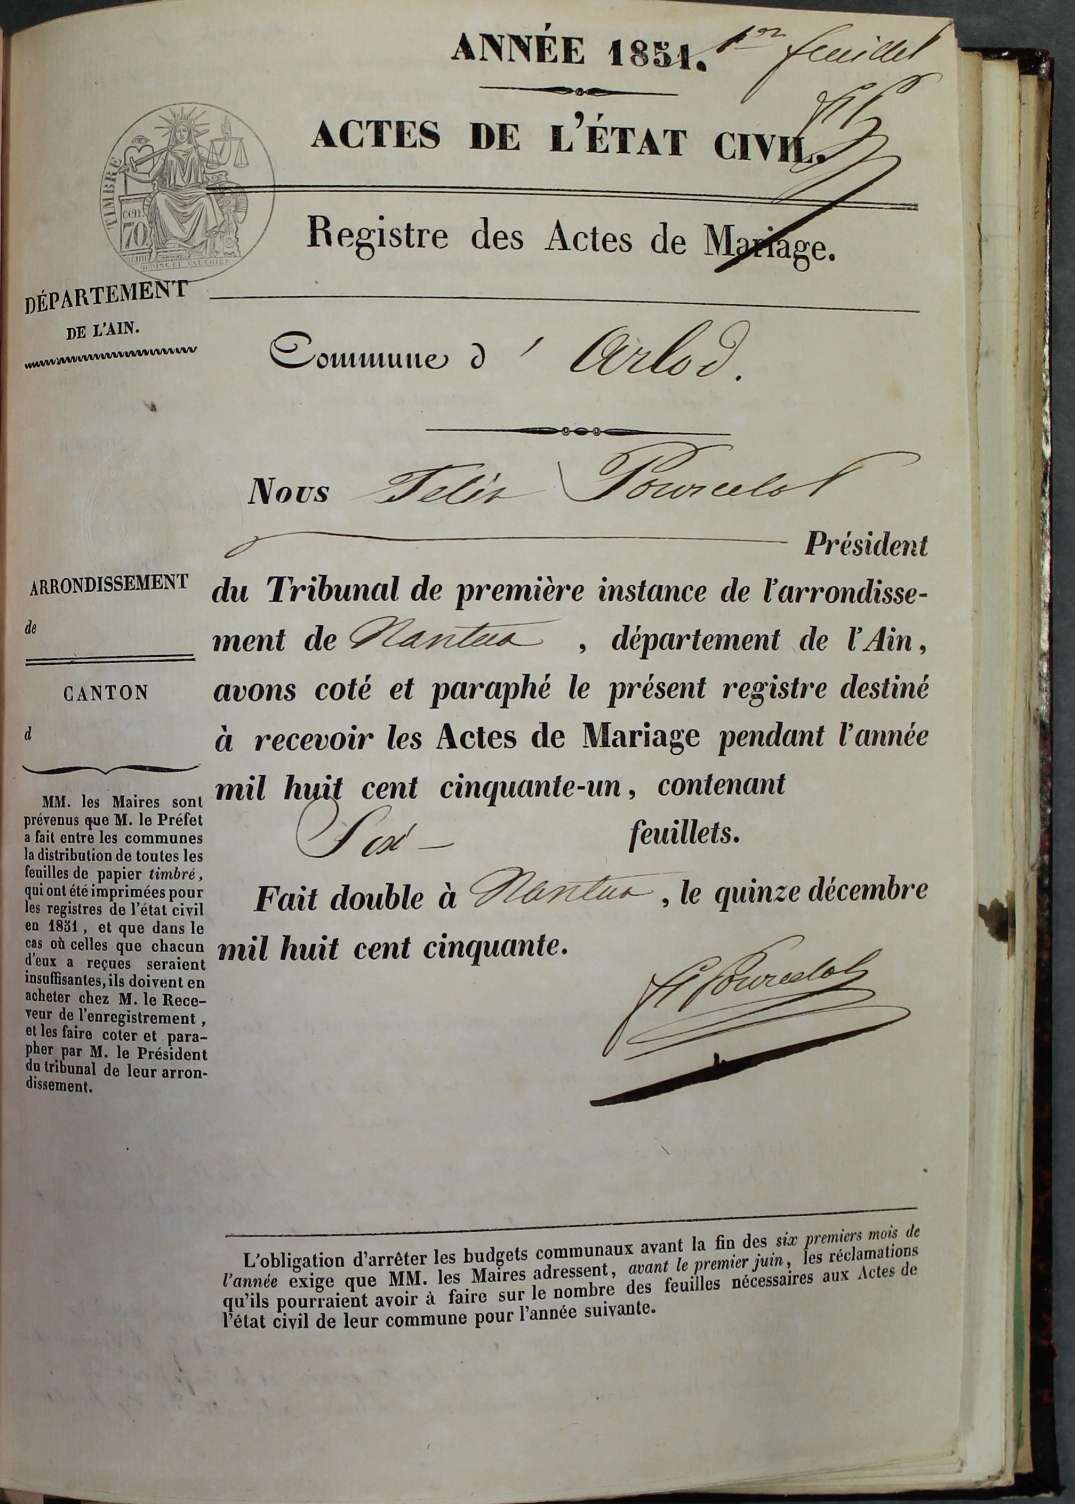 ANNÉE 1851.
1er feuillet
ACTES DE L'ÉTAT CIVIL.
TIMBRE
cent
70
Registre des Actes de Mariage.
DÉPARTEMENT
DE L'AIN.
Commune d' Arlod.
Nous Félix Pourcelot
Président
du Tribunal de première instance de l'arrondisse-
ment de Nantua, département de l'Ain,
avons coté et paraphé le présent registre destiné
à recevoir les Actes de Mariage pendant l'année
mil huit cent cinquante-un, contenant
Six feuillets.
Fait double à Nantua, le quinze décembre
mil huit cent cinquante.
Pourcelot
ARRONDISSEMENT
de
CANTON
d
MM. les Maires sont
prévenus que M. le Préfet
a fait entre les communes
la distribution de toutes les
feuilles de papier timbré,
qui ont été imprimées pour
les registres de l'état civil
en 1851, et que dans le
cas où celles que chacun
d'eux a reçues seraient
insuffisantes, ils doivent en
acheter chez M. le Rece-
veur de l'enregistrement,
et les faire coter et para-
pher par M. le Président
du tribunal de leur arron-
dissement.
L'obligation d'arrêter les budgets communaux avant la fin des six premiers mois de
l'année exige que MM. les Maires adressent, avant le premier juin, les réclamations
qu'ils pourraient avoir à faire sur le nombre des feuilles nécessaires aux Actes de
l'état civil de leur commune pour l'année suivante.